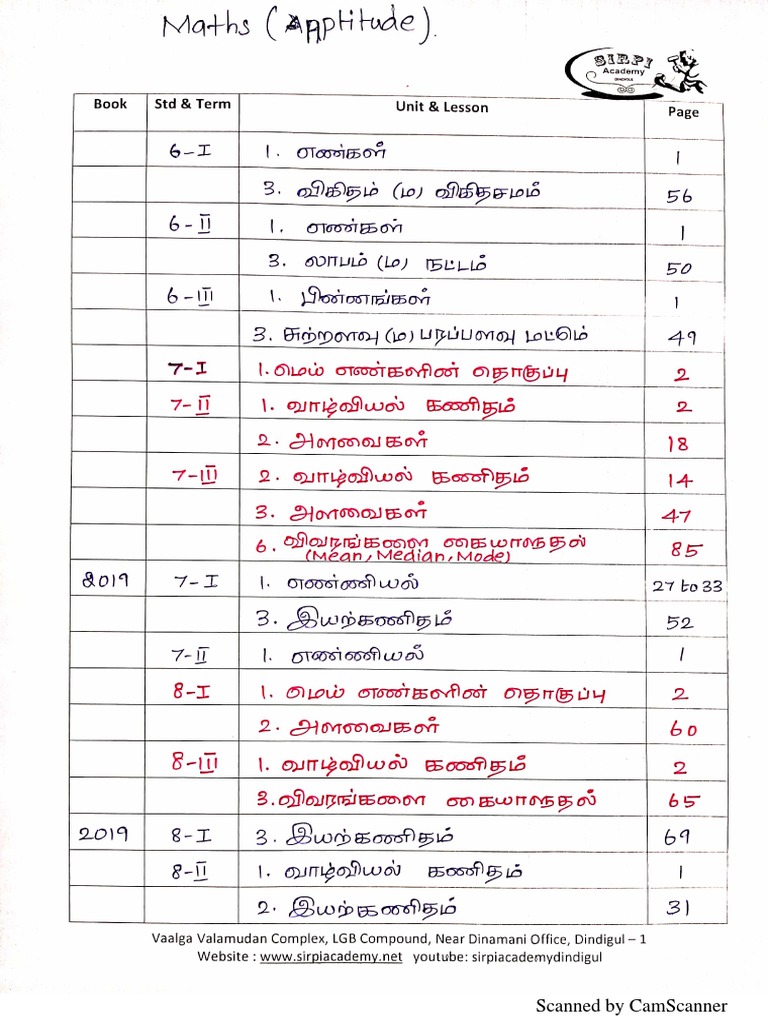 Maths (Apptitude).
SIRPI
Academy
DINDIGUL
Book Std & Term Unit & Lesson Page
6-I 1. எண்கள் 1
3. விகிதம் (ம) விகிதசமம் 56
6-II 1. எண்கள் 1
3. லாபம் (ம) நட்டம் 50
6-III 1. பின்னங்கள் 1
3. சுற்றளவு (ம) பரப்பளவு மட்டும் 49
7-I 1. மெய் எண்களின் தொகுப்பு 2
7-II 1. வாழ்வியல் கணிதம் 2
2. அளவைகள் 18
7-III 2. வாழ்வியல் கணிதம் 14
3. அளவைகள் 47
6. விவரங்களை கையாளுதல் 85
(Mean, Median, Mode)
2019 7-I 1. எண்ணியல் 27 to 33
3. இயற்கணிதம் 52
7-II 1. எண்ணியல் 1
8-I 1. மெய் எண்களின் தொகுப்பு 2
2. அளவைகள் 60
8-III 1. வாழ்வியல் கணிதம் 2
3. விவரங்களை கையாளுதல் 65
2019 8-I 3. இயற்கணிதம் 69
8-II 1. வாழ்வியல் கணிதம் 1
2. இயற்கணிதம் 31
Vaalga Valamudan Complex, LGB Compound, Near Dinamani Office, Dindigul – 1
Website : www.sirpiacademy.net youtube: sirpiacademydindigul
Scanned by CamScanner